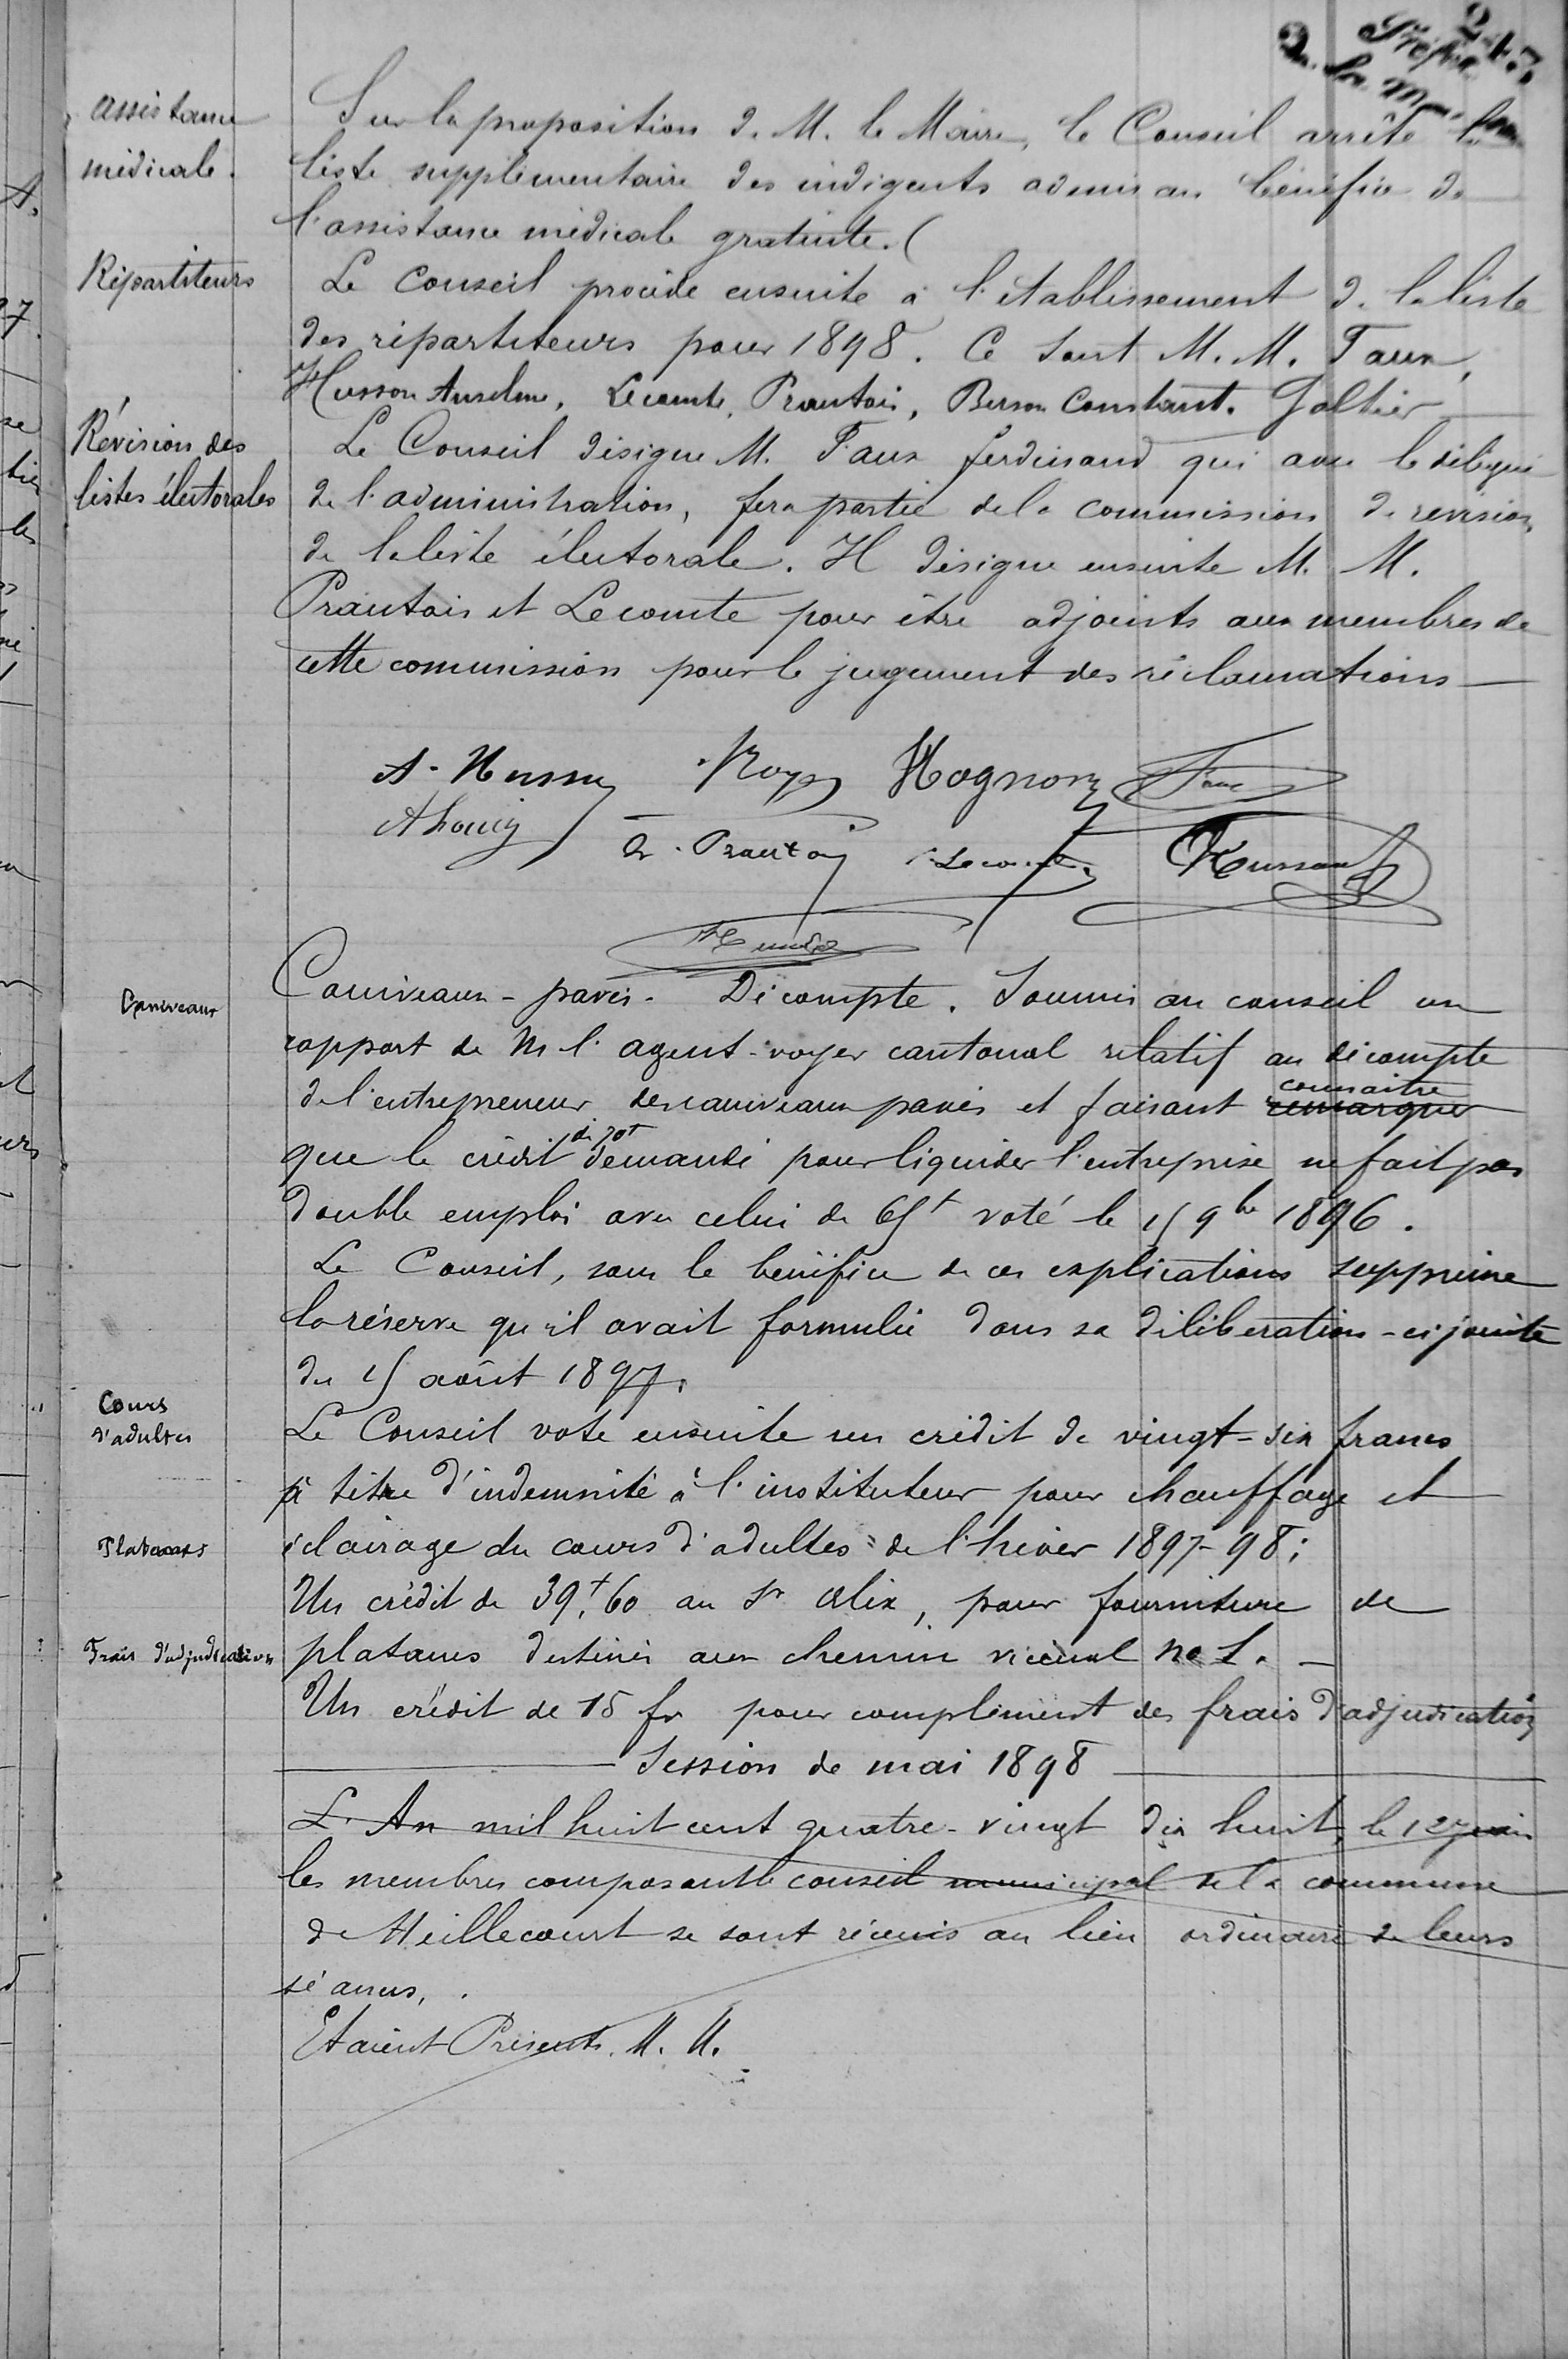 assistance
médicale.
Sur la proposition de M. le Maire, le Conseil arrête la
liste supplémentaire des indigents admis au bénéfice de
l'assistance médicale gratuite.
Répartiteurs
Le Conseil procède ensuite à l'établissement de la liste
des répartiteurs pour 1898. Ce sont M. M. Faux,
Husson Anselme, Lecomte, Prautois, Berson Constant. Galtier
Révision des
listes électorales
Le Conseil désigne M. Faux ferdinand qui avec le délégué
de l'administration, fera partie de la commission de révision
de la liste électorale. Il désigne ensuite M. M.
Prautois et Lecomte pour être adjoints aux membres de
cette commission pour le jugement des réclamations
A. Husson Hognon Faux
Prautois Lecomte
Caniveaux
Caniveaux-pavés. Décompte. Soumis au conseil un
rapport de M l'agent-voyer cantonal relatif au décompte
de l'entrepreneur des caniveaux pavés et faisant remarquer connaitre
que le crédit de 70f demandé pour liquider l'entreprise ne fait pas
double emploi avec celui de 65f voté le 15 9bre 1896.
Le Conseil, sous le bénéfice de ces explications supprime
la réserve qu'il avait formulée dans sa délibération-ci jointe
du 15 août 1897.
Cours
d'adultes
Le Conseil vote ensuite un crédit de vingt-six francs
à titre d'indemnité à l'instituteur pour chauffage et
éclairage du cours d'adultes de l'hiver 1897-98;
Platanes
Un crédit de 39f,60 au Sr Alix, pour fourniture de
platanes destinés aux chemin vicinal no 1.
Frais d'adjudication
Un crédit de 15 fr pour complément des frais d'adjudication
Session de mai 1898
L'An mil huit cent quatre-vingt dix huit, le 12 juin
les membres composant le conseil municipal de la commune
de Heillecourt se sont réunis au lieu ordinaire de leurs
séances,.
Etaient Présents. M. M.